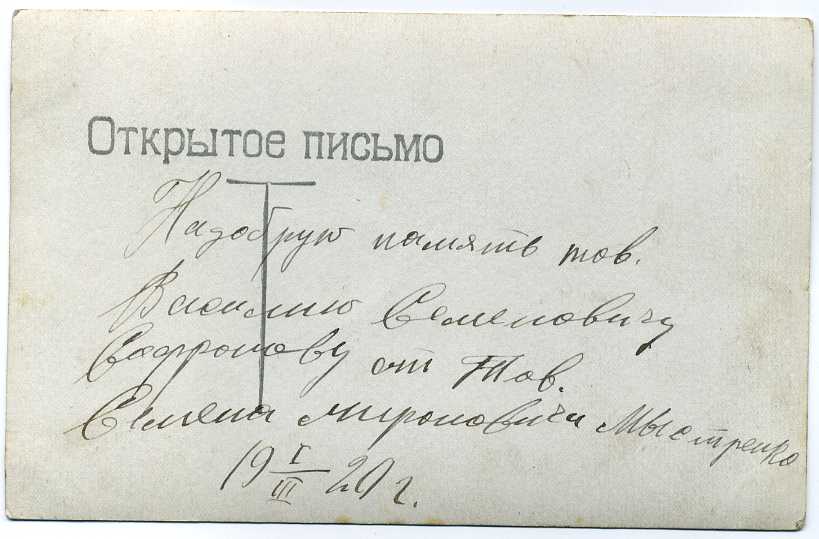 Открытое письмо
На добрую память тов.
Василию Семеновичу
Софронову от Тов.
Семена мироновича Мыстренко
19 I/III 20 г.